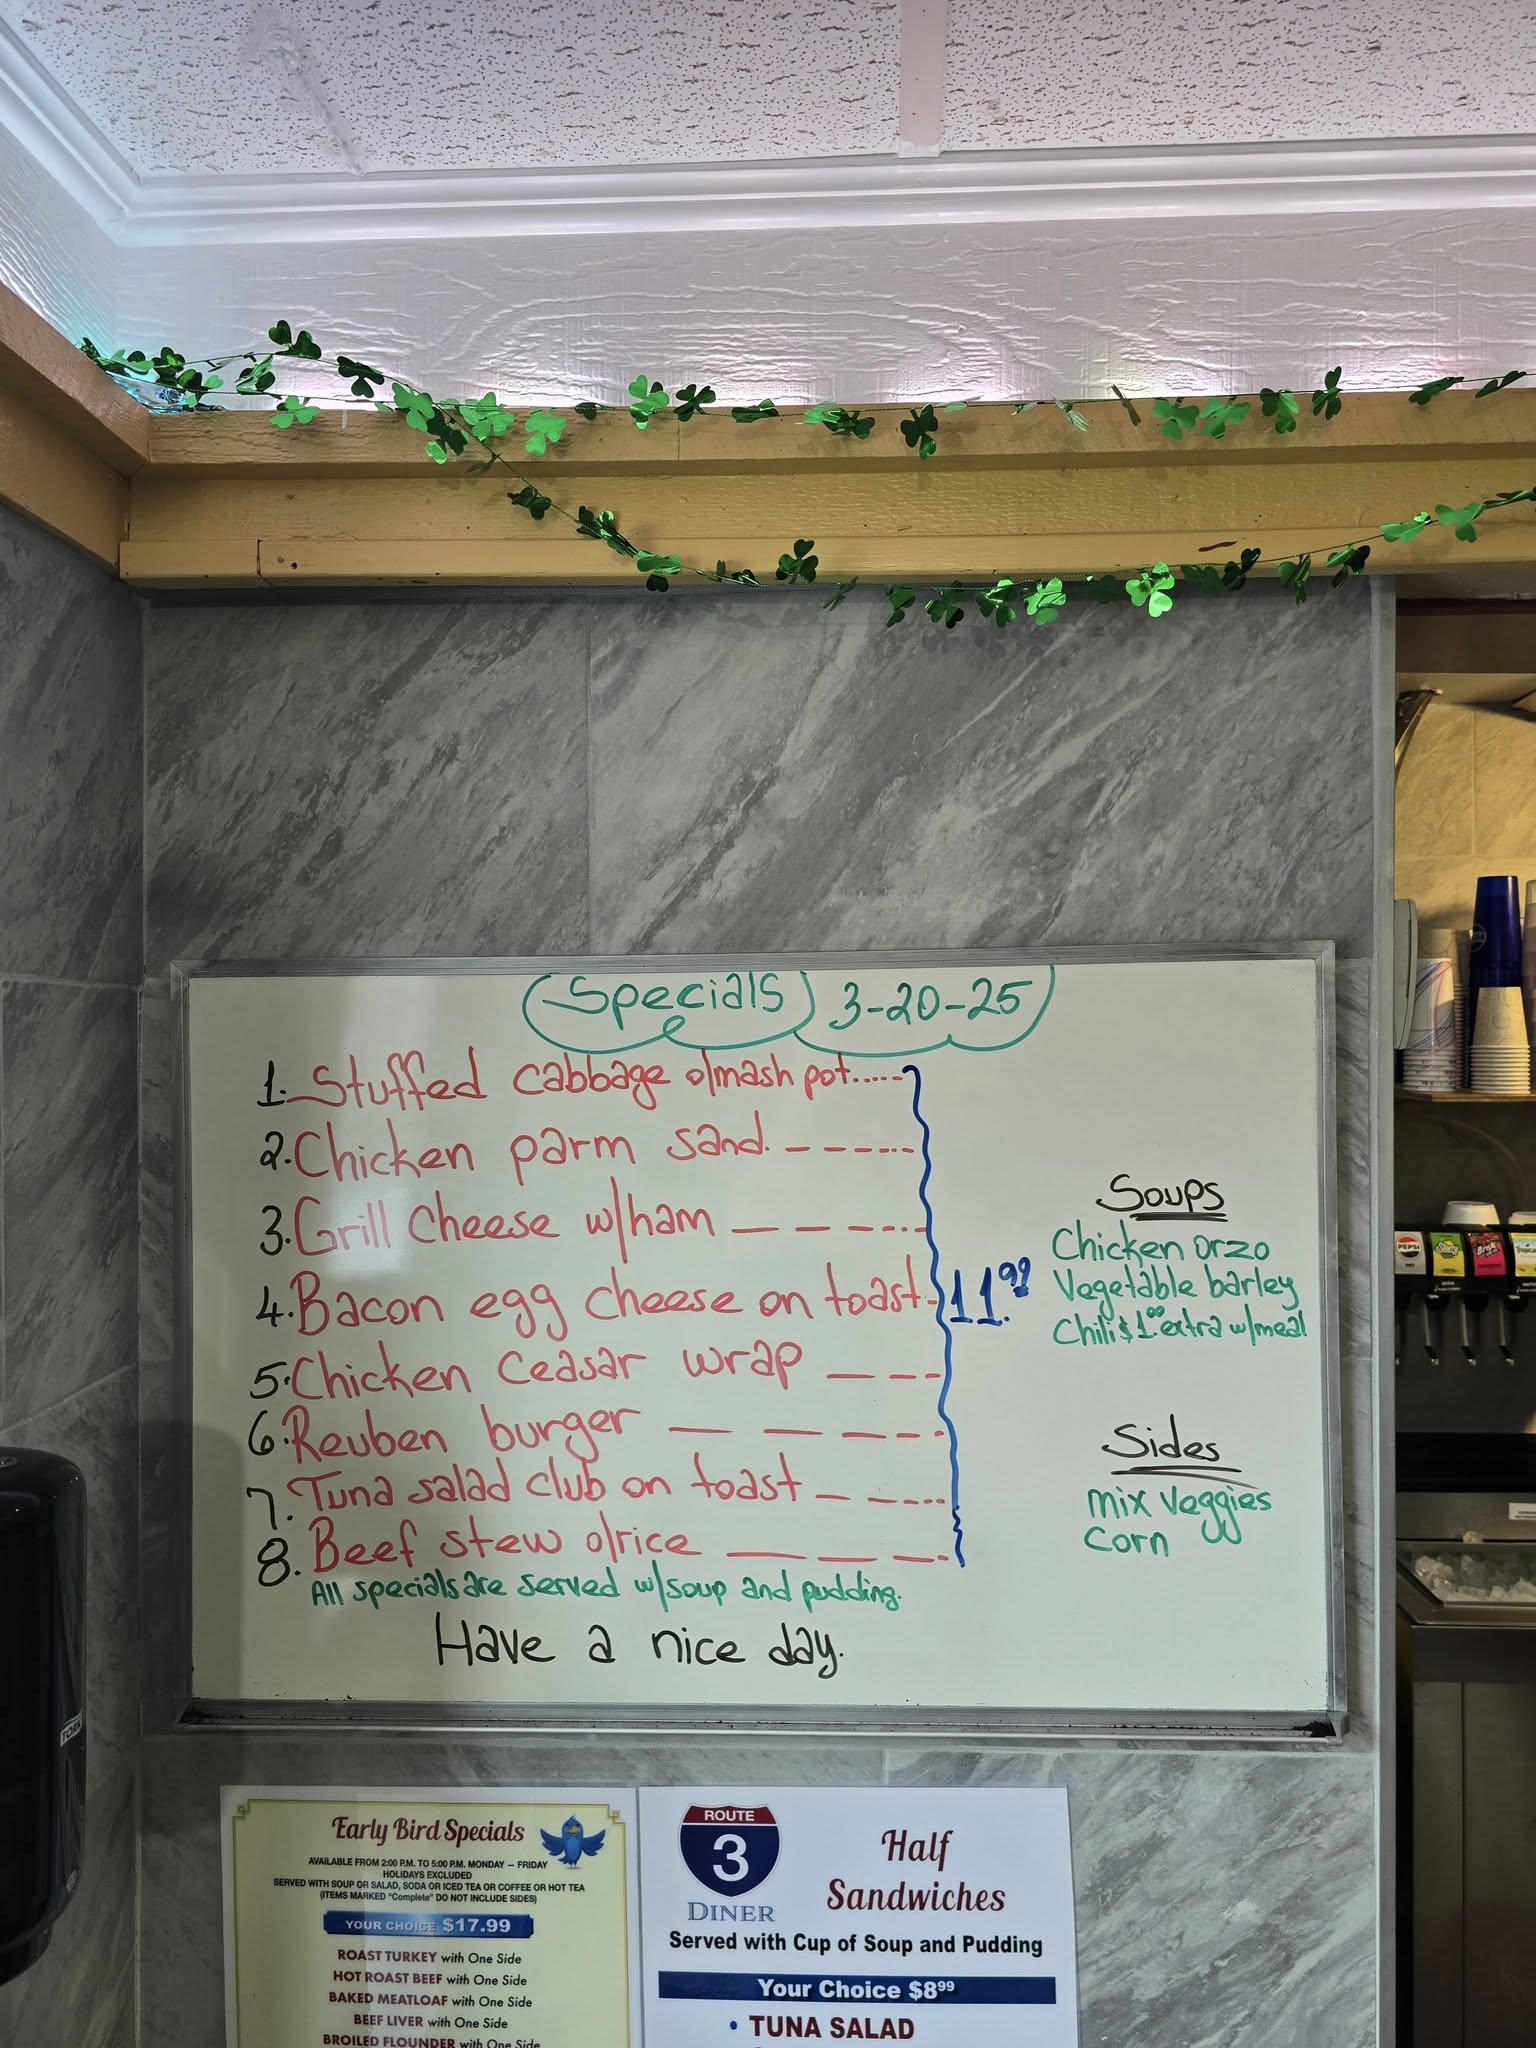 Specials 3-20-25
1. Stuffed cabbage o/mash pot......
2. Chicken parm sand. - - - - - -
3. Grill cheese w/ham - - - - -
4. Bacon egg cheese on toast -
5. Chicken ceasar wrap - - -
6. Reuben burger - - - - -
7. Tuna salad club on toast - - - - -
8. Beef stew o/rice - - - -
11.99
All specials are served w/soup and pudding.
Have a nice day.
Soups
Chicken orzo
Vegetable barley
Chili $1.00 extra w/meal
Sides
mix veggies
corn
TORK
PEPSI
Early Bird Specials
AVAILABLE FROM 2:00 P.M. TO 5:00 P.M. MONDAY – FRIDAY
HOLIDAYS EXCLUDED
SERVED WITH SOUP OR SALAD, SODA OR ICED TEA OR COFFEE OR HOT TEA
(ITEMS MARKED "Complete" DO NOT INCLUDE SIDES)
YOUR CHOICE $17.99
ROAST TURKEY with One Side
HOT ROAST BEEF with One Side
BAKED MEATLOAF with One Side
BEEF LIVER with One Side
BROILED FLOUNDER with One Side
ROUTE
3
DINER
Half
Sandwiches
Served with Cup of Soup and Pudding
Your Choice $8.99
• TUNA SALAD